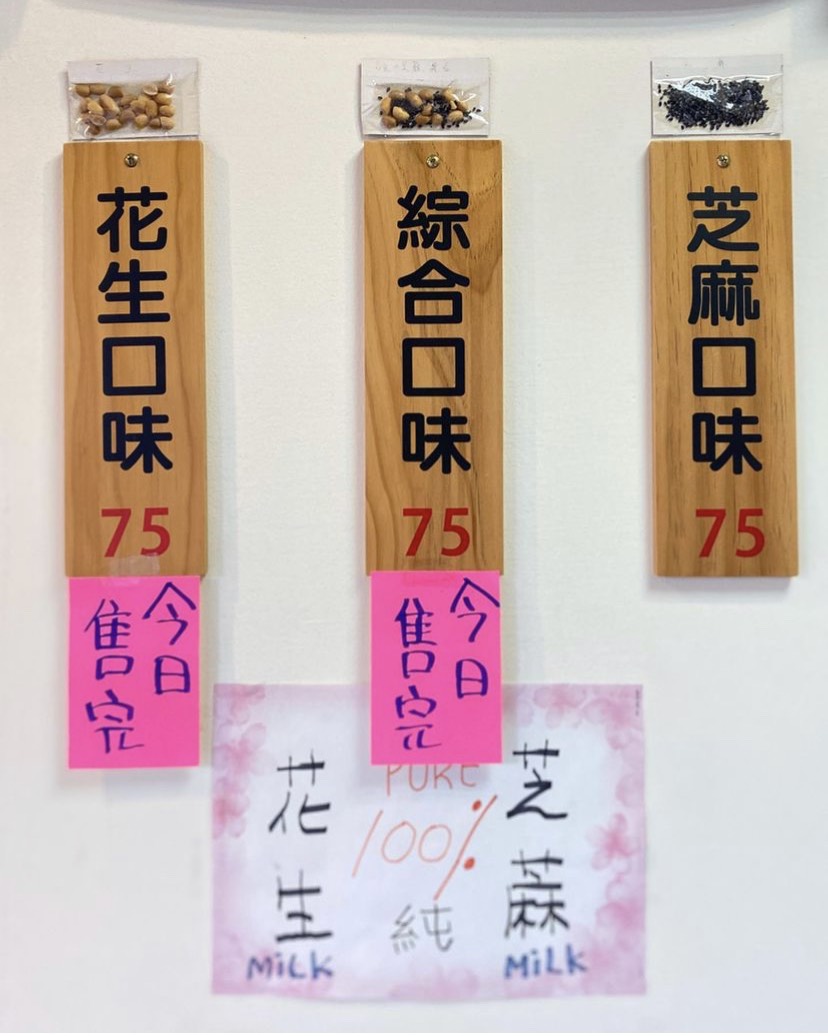 花生口味
75
今日
售完
綜合口味
75
今日
售完
芝麻口味
75
花生
MiLK
PURE
100%
純
芝蔴
MiLK